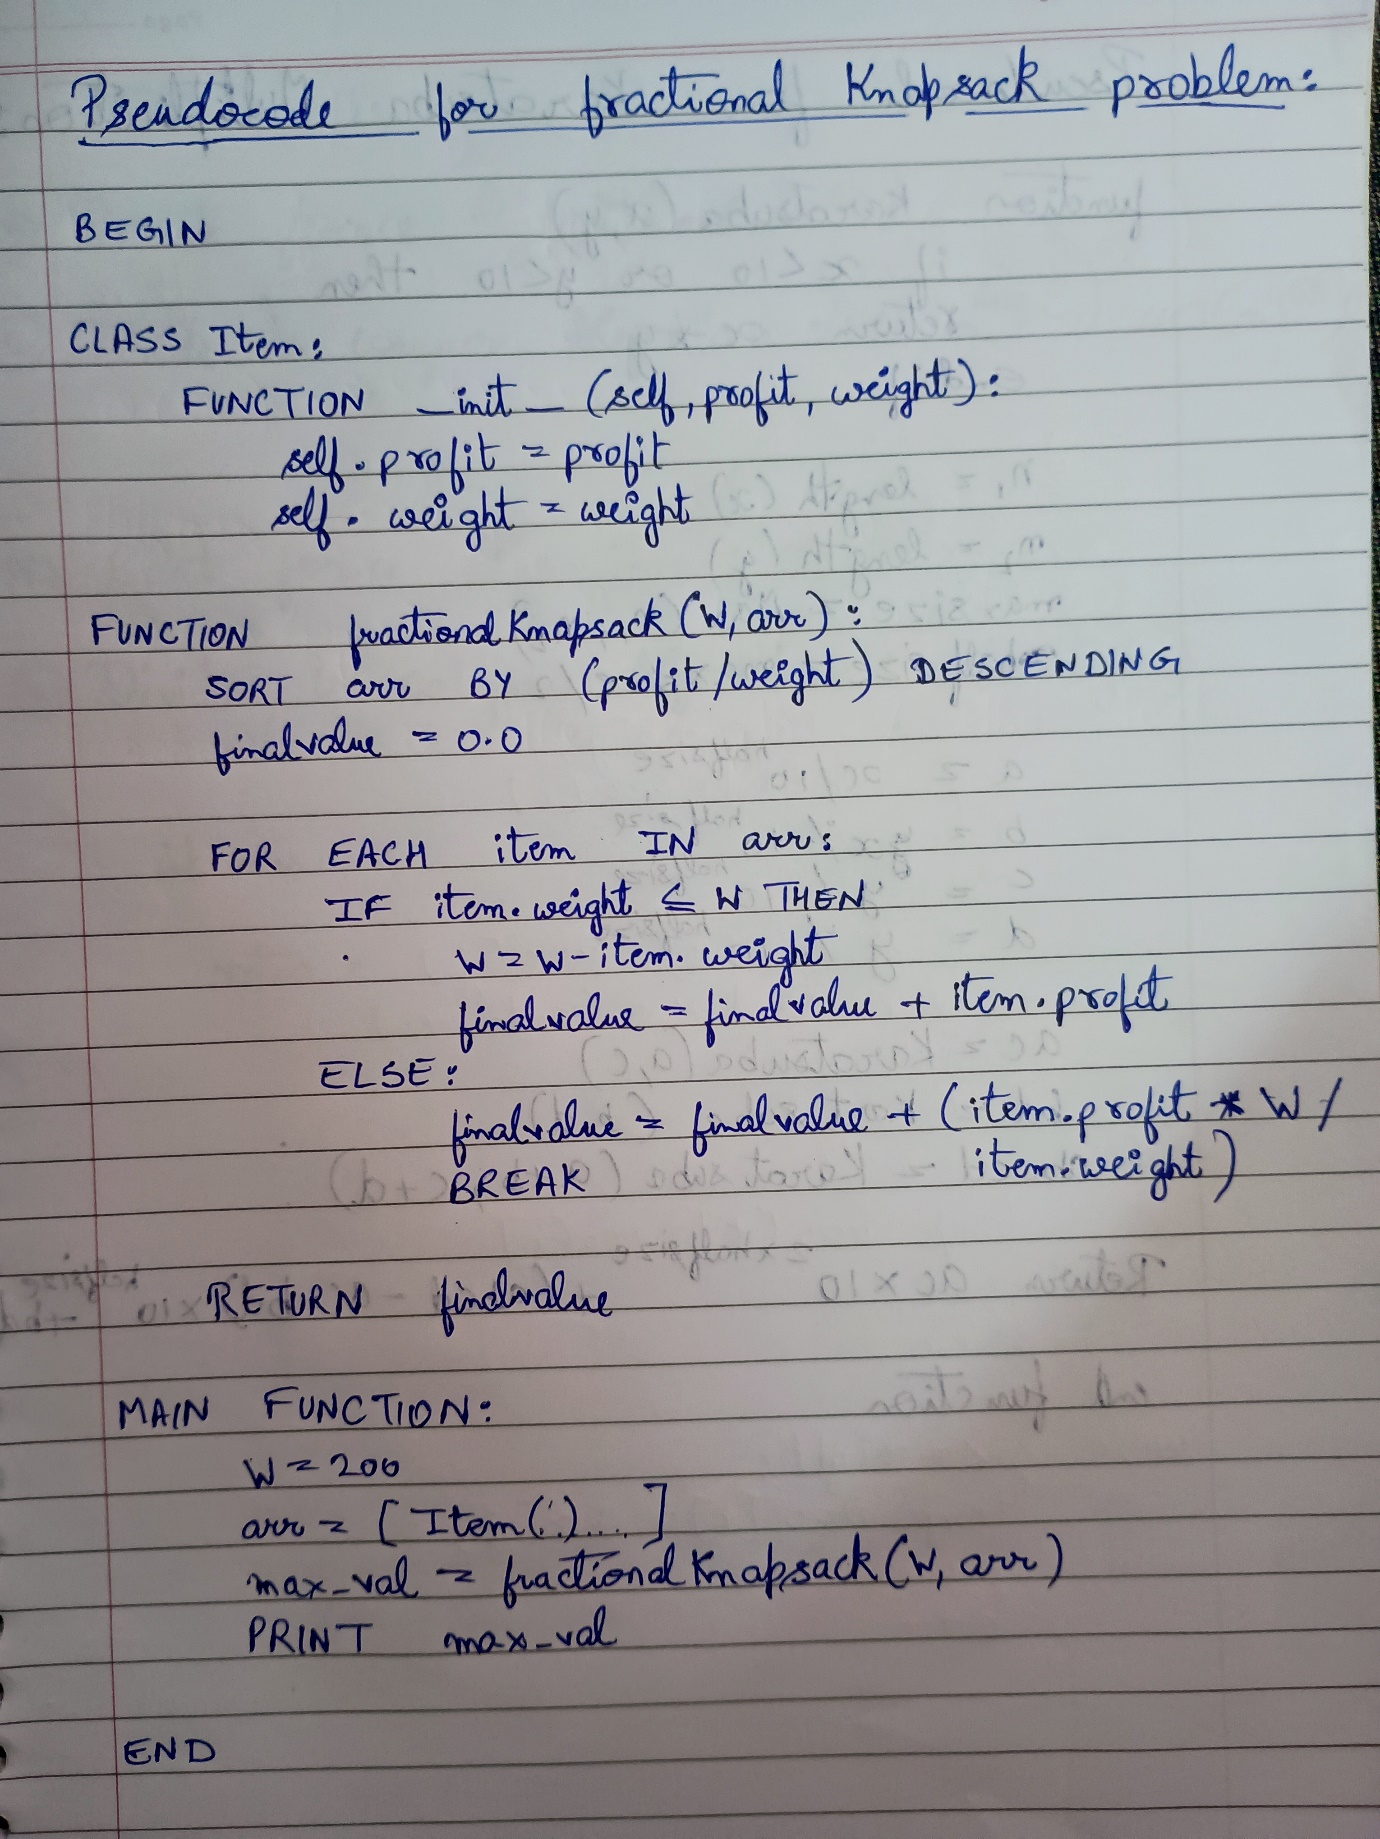 Pseudocode for fractional Knapsack problem:
BEGIN
CLASS Item:
FUNCTION _init_ (self, profit, weight):
self.profit = profit
self.weight = weight
FUNCTION fractionalKnapsack (W, arr):
SORT arr BY (profit/weight) DESCENDING
finalvalue = 0.0
FOR EACH item IN arr:
IF item.weight ≤ W THEN
W = W - item.weight
finalvalue = finalvalue + item.profit
ELSE:
finalvalue = finalvalue + (item.profit * W /
item.weight)
BREAK
RETURN finalvalue
MAIN FUNCTION:
W = 200
arr = [Item(.)....]
max_val = fractionalKnapsack (W, arr)
PRINT max_val
END